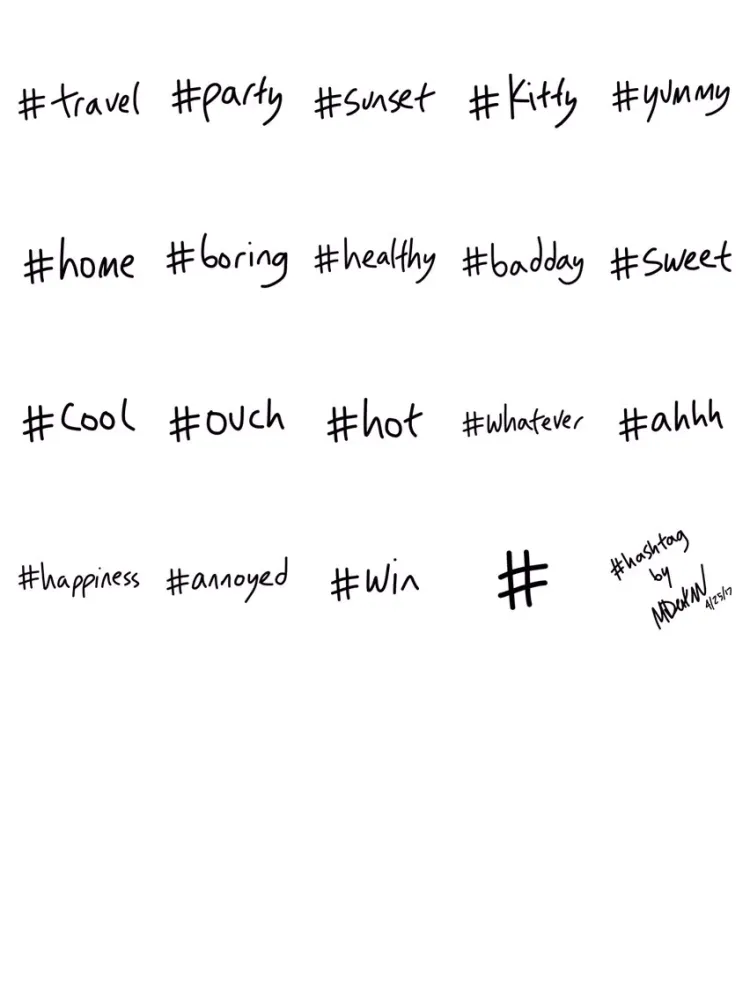 #travel #party #sunset #Kitty #yummy
#home #boring #healthy #badday #sweet
#Cool #ouch #hot #whatever #ahhh
#happiness #annoyed #Win # #hashtag
by
4/25/17